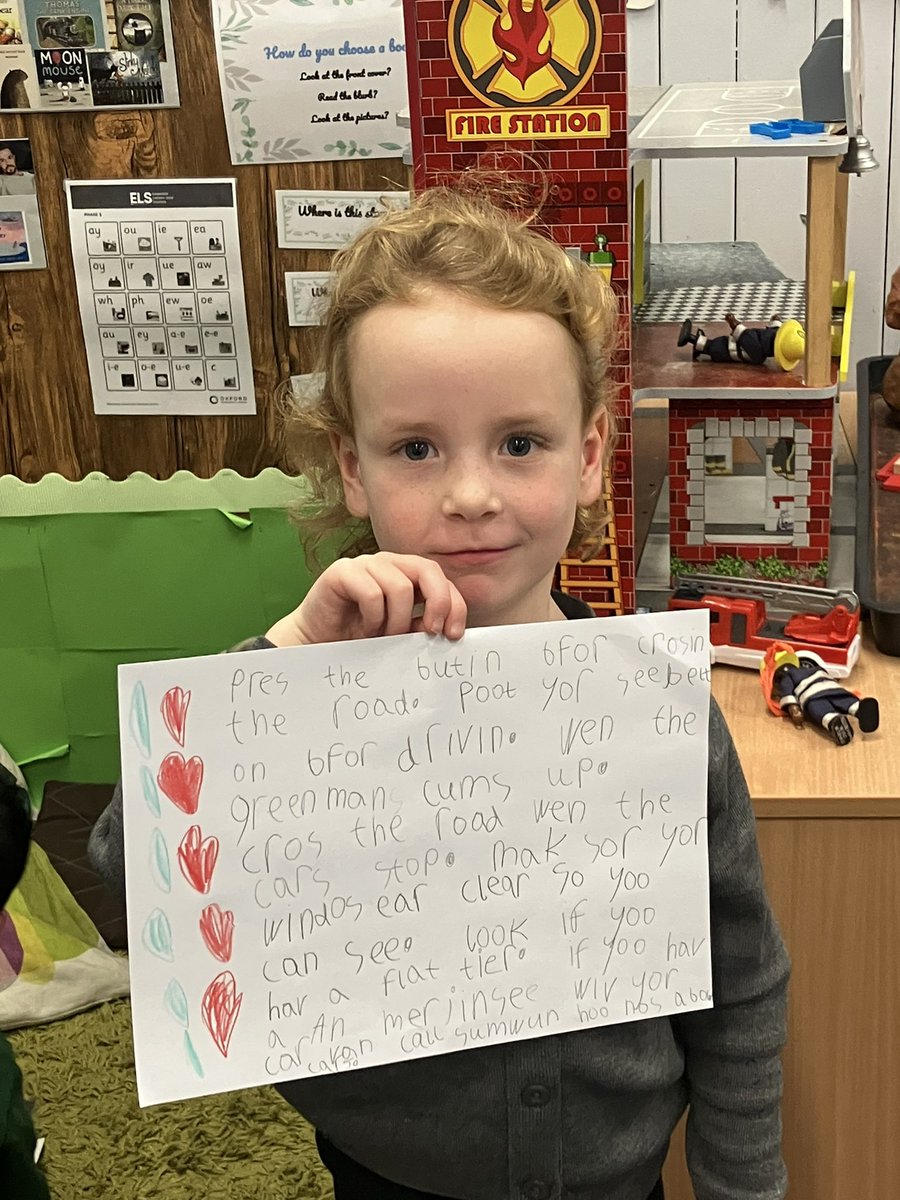 THOMAS
MOON
MOUSE
How do you choose a boo
Look at the front cover?
Read the blurb?
Look at the pictures?
FIRE STATION
ELS
PHASE 5
ay ou ie ea
oy ir ue aw
wh ph ew oe
au ey a-e e-e
i-e o-e u-e c
OXFORD
Where is this sto
Pres the butin bfor crosin
the road. Poot yor seebelt
on bfor drivin. Wen the
green mans cums up.
cros the road wen the
cars stop. mak sor yor
windos ear clear so yoo
can see. look if yoo
hav a flat tier. if yoo hav
a An merjinsee wiv yor
car can call sumwun hoo nos abou
cars.